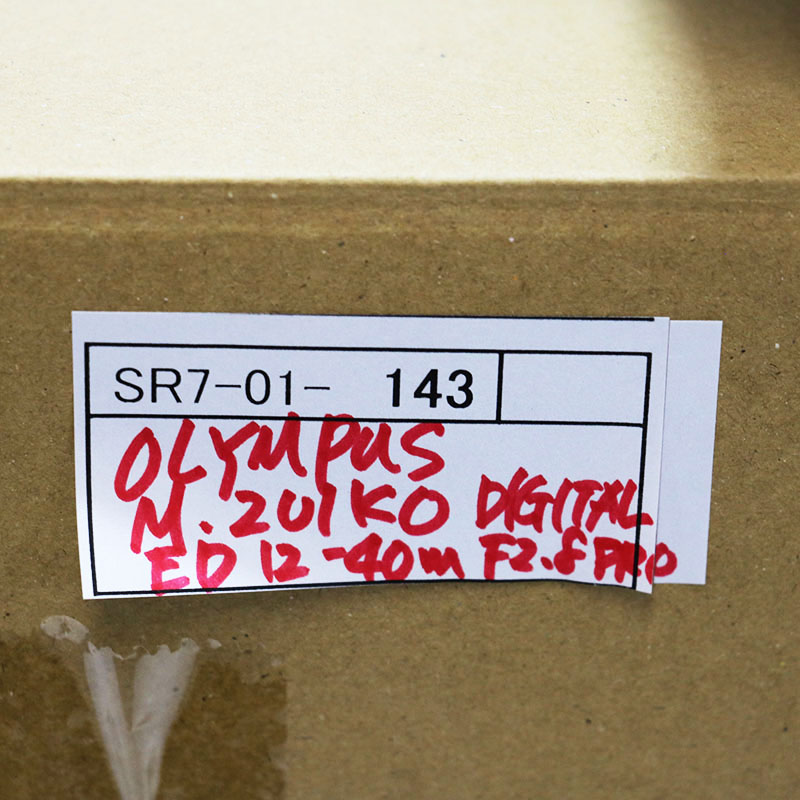 SR7-01- 143
OLYMPUS
M.ZUIKO DIGITAL
ED 12-40m F2.8 PRO